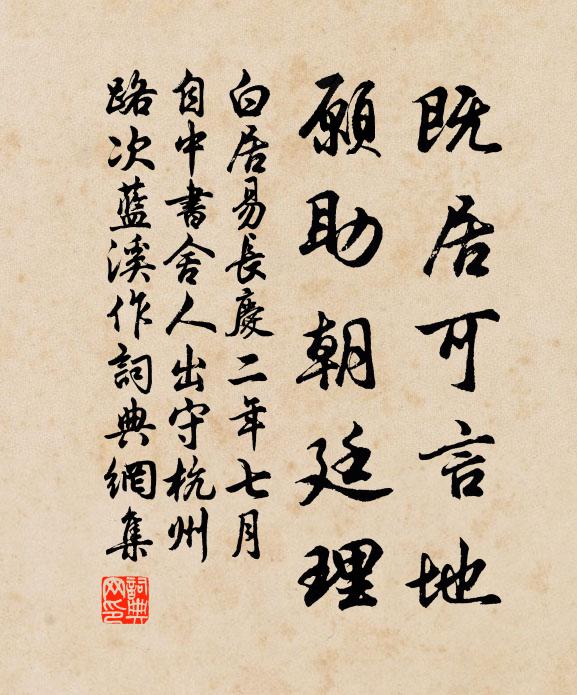 既居可言地
願助朝廷理
白居易長慶二年七月
自中書舍人出守杭州
路次藍溪作詞典網集
詞典
网印